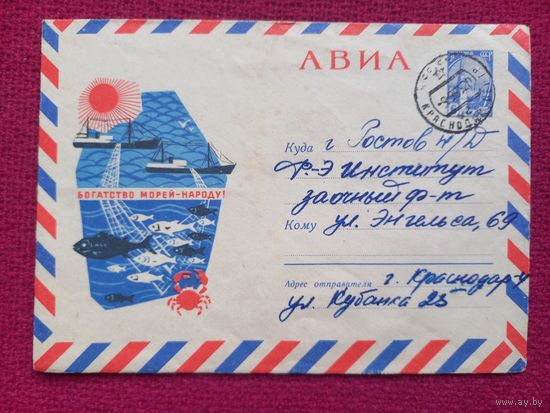 АВИА
СССР
КРАСНОДАР
БОГАТСТВО МОРЕЙ-НАРОДУ!
Куда г Ростов Н/Д
Ф-Э Институт
заочный ф-т
Кому ул. Энгельса, 69
Адрес отправителя г. Краснодар-4
ул. Кубанка 23
www.ay.by